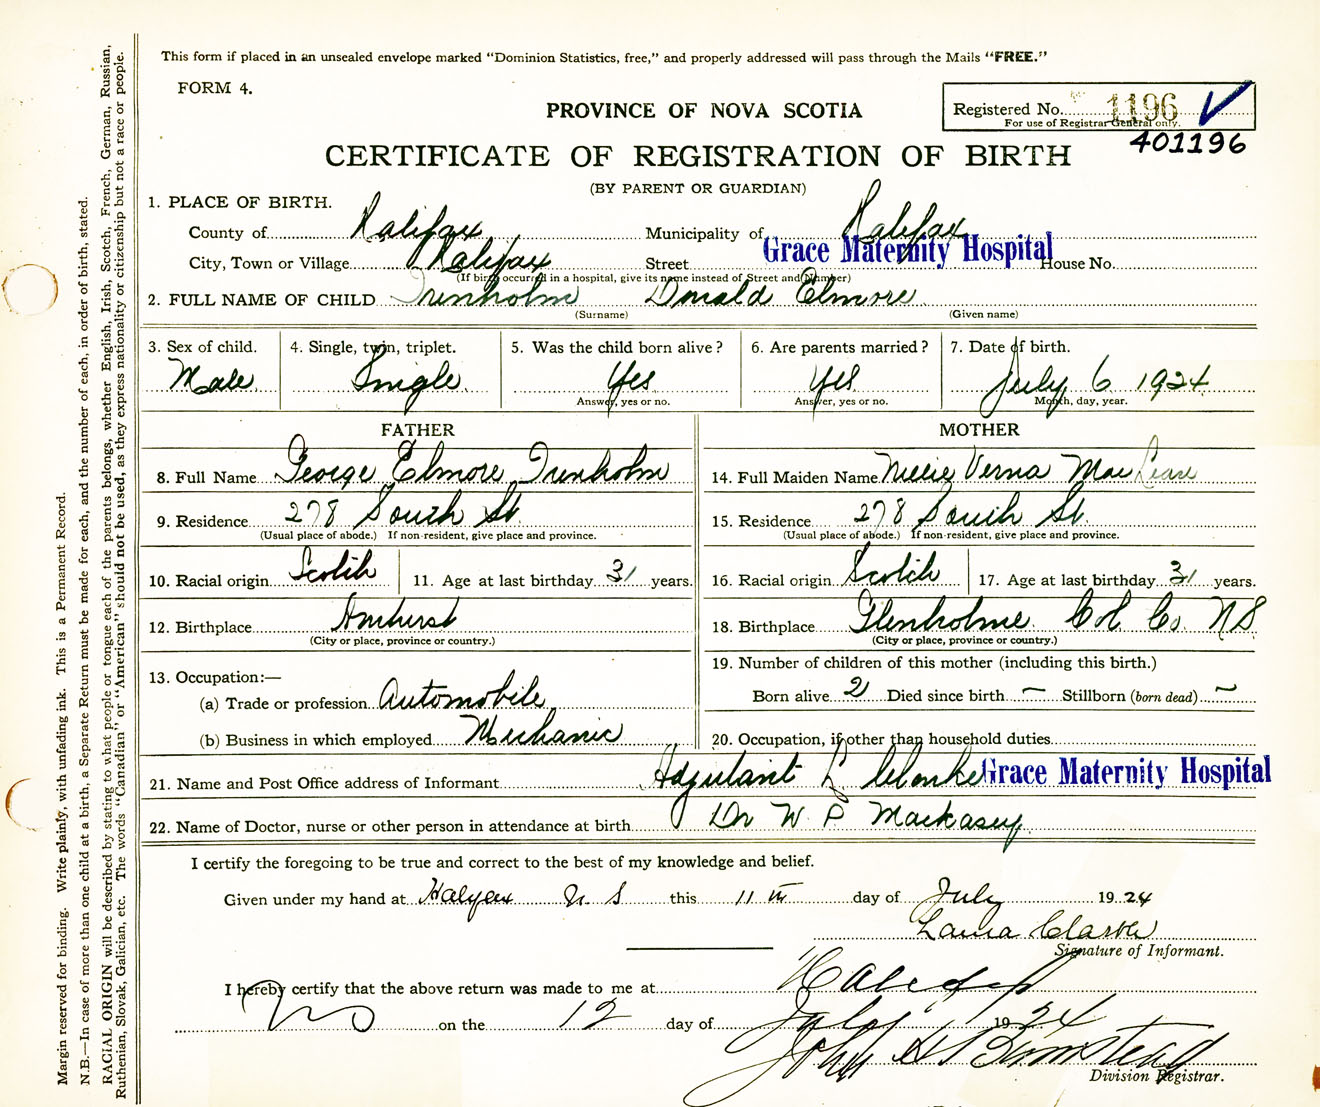 This form if placed in an unsealed envelope marked "Dominion Statistics, free," and properly addressed will pass through the Mails "FREE."
FORM 4.
PROVINCE OF NOVA SCOTIA
Registered No. 1196
For use of Registrar General only.
401196
CERTIFICATE OF REGISTRATION OF BIRTH
(BY PARENT OR GUARDIAN)
1. PLACE OF BIRTH.
County of Halifax Municipality of Halifax
City, Town or Village Halifax Street Grace Maternity Hospital House No.
(If birth occurred in a hospital, give its name instead of Street and Number)
2. FULL NAME OF CHILD Trenholm Donald Elmore
(Surname) (Given name)
3. Sex of child. 4. Single, twin, triplet. 5. Was the child born alive? 6. Are parents married? 7. Date of birth.
Male Single Yes Yes July 6 1924
Answer, yes or no. Answer, yes or no. Month, day, year.
FATHER MOTHER
8. Full Name George Elmore Trenholm 14. Full Maiden Name Nellie Verna Mac Lean
9. Residence 278 South St. 15. Residence 278 South St.
(Usual place of abode.) If non-resident, give place and province. (Usual place of abode.) If non-resident, give place and province.
10. Racial origin Scotch 11. Age at last birthday 31 years. 16. Racial origin Scotch 17. Age at last birthday 31 years.
12. Birthplace Amherst 18. Birthplace Glenholme Col Co. N S
(City or place, province or country.) (City or place, province or country.)
13. Occupation:— 19. Number of children of this mother (including this birth.)
(a) Trade or profession Automobile Born alive 2 Died since birth – Stillborn (born dead) –
(b) Business in which employed Mechanic 20. Occupation, if other than household duties
21. Name and Post Office address of Informant Adjutant L Clarke Grace Maternity Hospital
22. Name of Doctor, nurse or other person in attendance at birth Dr W P Mackasey
I certify the foregoing to be true and correct to the best of my knowledge and belief.
Given under my hand at Halifax N S this 11th day of July 1924
Laura Clarke
Signature of Informant.
I hereby certify that the above return was made to me at Halifax
NS on the 12 day of July 1924
John H Bumstead
Division Registrar.
Margin reserved for binding. Write plainly, with unfading ink. This is a Permanent Record.
N.B.—In case of more than one child at a birth, a Separate Return must be made for each, and the number of each, in order of birth, stated.
RACIAL ORIGIN will be described by stating to what people or tongue each of the parents belongs, whether English, Irish, Scotch, French, German, Russian,
Ruthenian, Slovak, Galician, etc. The words "Canadian" or "American" should not be used, as they express nationality or citizenship but not a race or people.